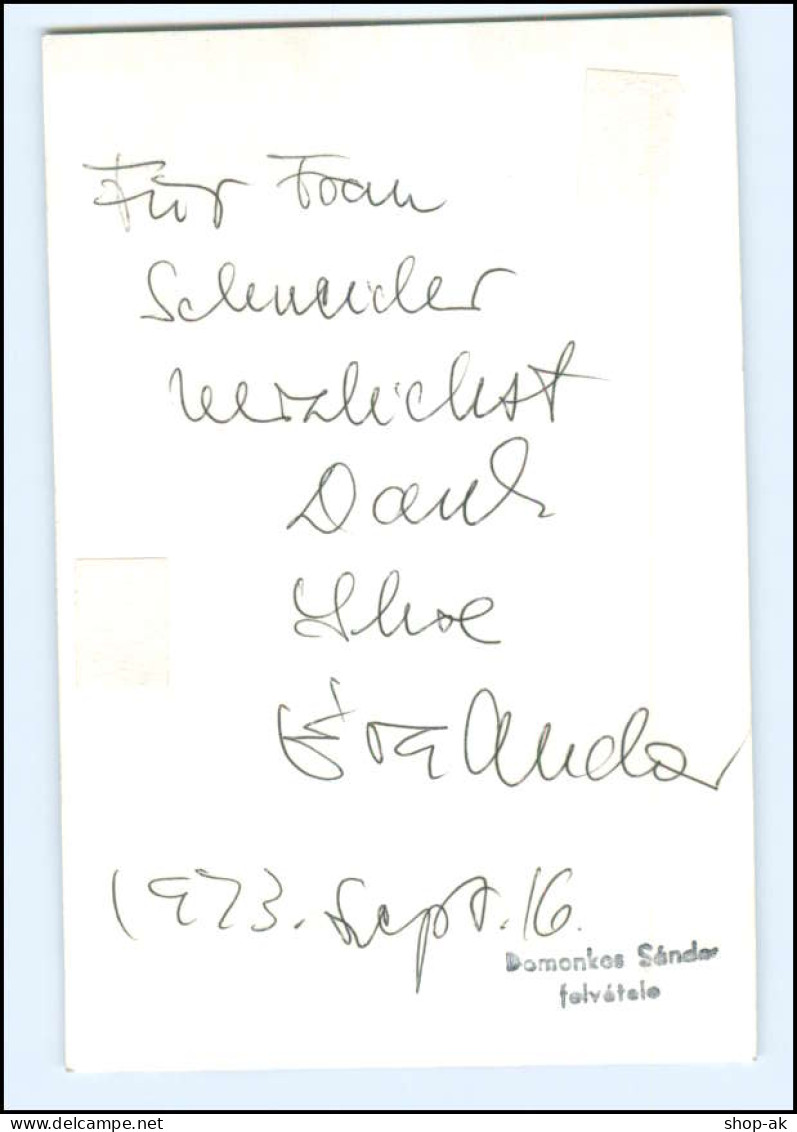 Für Frau
Schneider
herzlichst
Dank
Ihre
Éva Andor
1973. Sept. 16.
Domonkos Sándor
felvétele
shop-ak